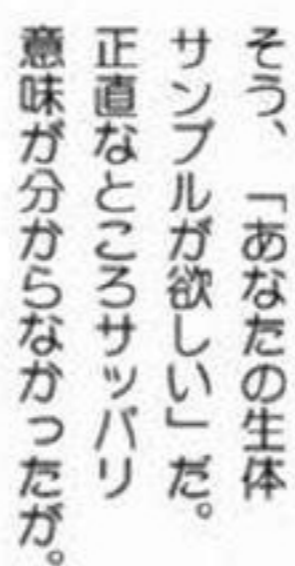 そう、「あなたの生体
サンプルが欲しい」だ。
正直なところサッパリ
意味が分からなかったが。